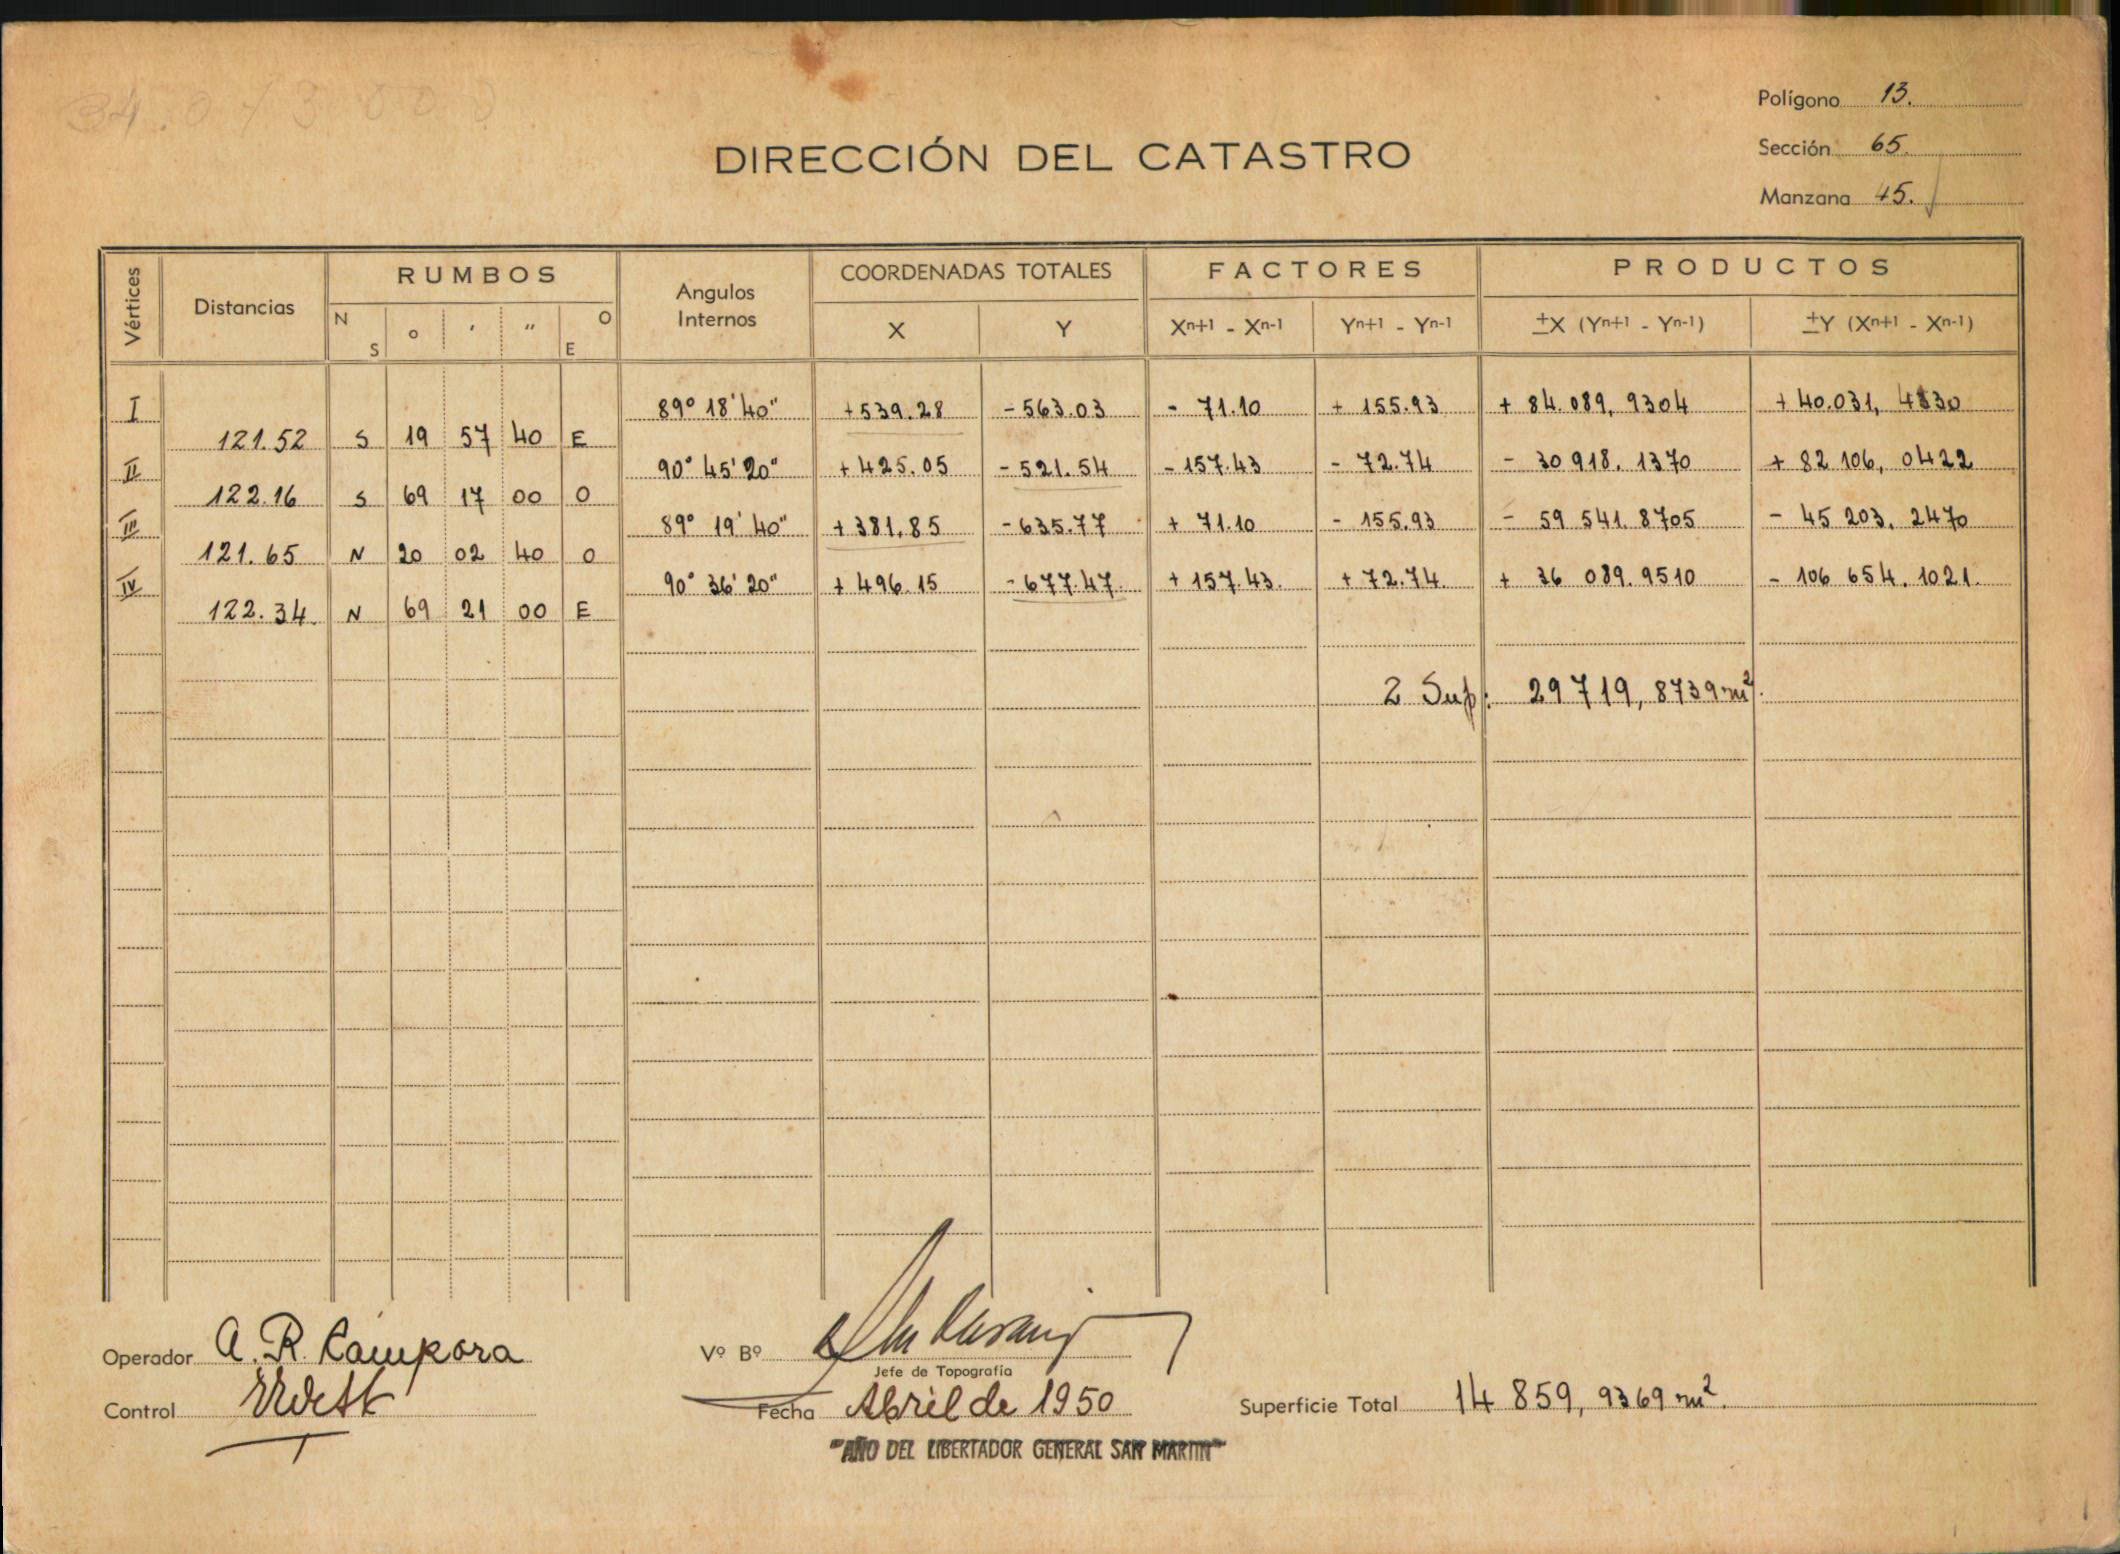 34.073000
Polígono 13.
Sección 65.
Manzana 45.
DIRECCIÓN DEL CATASTRO
Vértices Distancias RUMBOS Angulos Internos COORDENADAS TOTALES FACTORES PRODUCTOS
N S ° ′ ″ O E X Y Xⁿ⁺¹ - Xⁿ⁻¹ Yⁿ⁺¹ - Yⁿ⁻¹ ±X (Yⁿ⁺¹ - Yⁿ⁻¹) ±Y (Xⁿ⁺¹ - Xⁿ⁻¹)
I 89° 18' 40" +539.28 -563.03 - 71.10 + 155.93 + 84.089,9304 + 40.031,4330
121.52 S 19 57 40 E
II 90° 45' 20" +425.05 -521.54 -157.43 - 72.74 - 30 918.1370 + 82 106,0422
122.16 S 69 17 00 O
III 89° 19' 40" +381.85 -635.77 + 71.10 - 155.93 - 59 541.8705 - 45 203.2470
121.65 N 20 02 40 O
IV 90° 36' 20" +496.15 -677.47. +157.43. +72.74. + 36 089.9510 - 106 654.1021.
122.34. N 69 21 00 E
2 Sup: 29719,8739 m².
Operador A. R. Cámpora
Vº Bº
Jefe de Topografía
Control
Fecha Abril de 1950
Superficie Total 14 859,9369 m².
"AÑO DEL LIBERTADOR GENERAL SAN MARTIN"